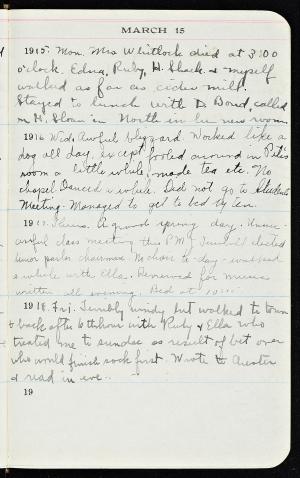 MARCH 15
1915. Mon. Mrs Whitlock died at 3:00
o'clock. Edna, Ruby, H. Shack. & myself
walked as far as cider mill.
Stayed to lunch with D Bond, called
on H. Sloan in North in her new room.
1916 Wed. Awful blizzard. Worked like a
dog all day, except fooled around in Pete's
room a little while, made tea etc. No
chapel Danced a while. Did not go to Students
Meeting. Managed to get to bed by ten.
1917. Thurs. A grand spring day.
awful class meeting this P.M. elected
junor parlor chairman. No choir to-day - walked
a while with Ella. Reviewed for
written all evening. Bed at 10
1918. Fri. Terribly windy but walked to town
& back after 6th hour with Ruby & Ella who
treated me to sundae as result of bet over
who would finish sock first. Wrote to
& read in eve.
19